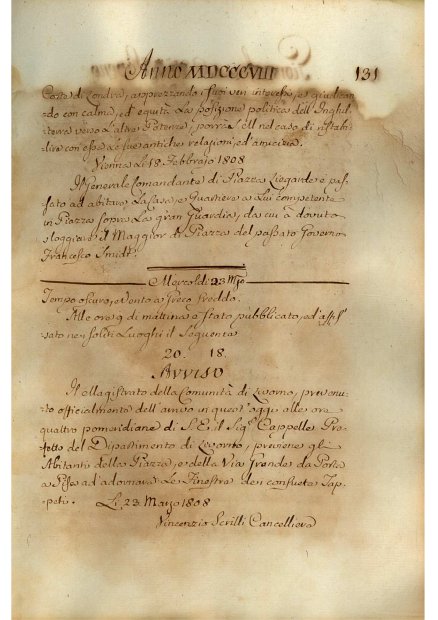 Anno MDCCCVIII 131
Corte di Londra, apprezzando i suoi veri interessi, e giudican-
do con calma, ed equità la posizione politica dell'Inghil-
terra verso l'altre Potenze, porrà nel caso di ristabi-
lire con essa le sue antiche relazioni, ed amicizia.
Vienna Li 18 Febbraio 1808
Il Generale Comandante di Piazza è pas-
sato ad abitare la Casa, e Quartiere a Lui competente
in Piazza sopra la gran Guardia, da cui à dovuto
sloggiare il Maggior di Piazza del passato Governo
Francesco Smidt.
Mercoldi 23 Mzo
Tempo oscuro, e Vento a Greco freddo.
Alle ore 9 di mattina è stato pubblicato, ed affis-
sato nei soliti Luoghi il Seguente
20. 18.
AVVISO
Il Magistrato della Comunità di Livorno, prevenu-
to officialmente dell'arrivo in quest'oggi alle ore
quattro pomeridiane di S. E. il Sigr Cappelle Pre-
fetto del Dipartimento di Livorno, previene gli
Abitanti della Piazza, e della Via Grande da Porta
a Pisa ad adornare Le Finestre dei consueti Tap-
peti. Li 23 Marzo 1808
Vincenzio Scrilli Cancelliere